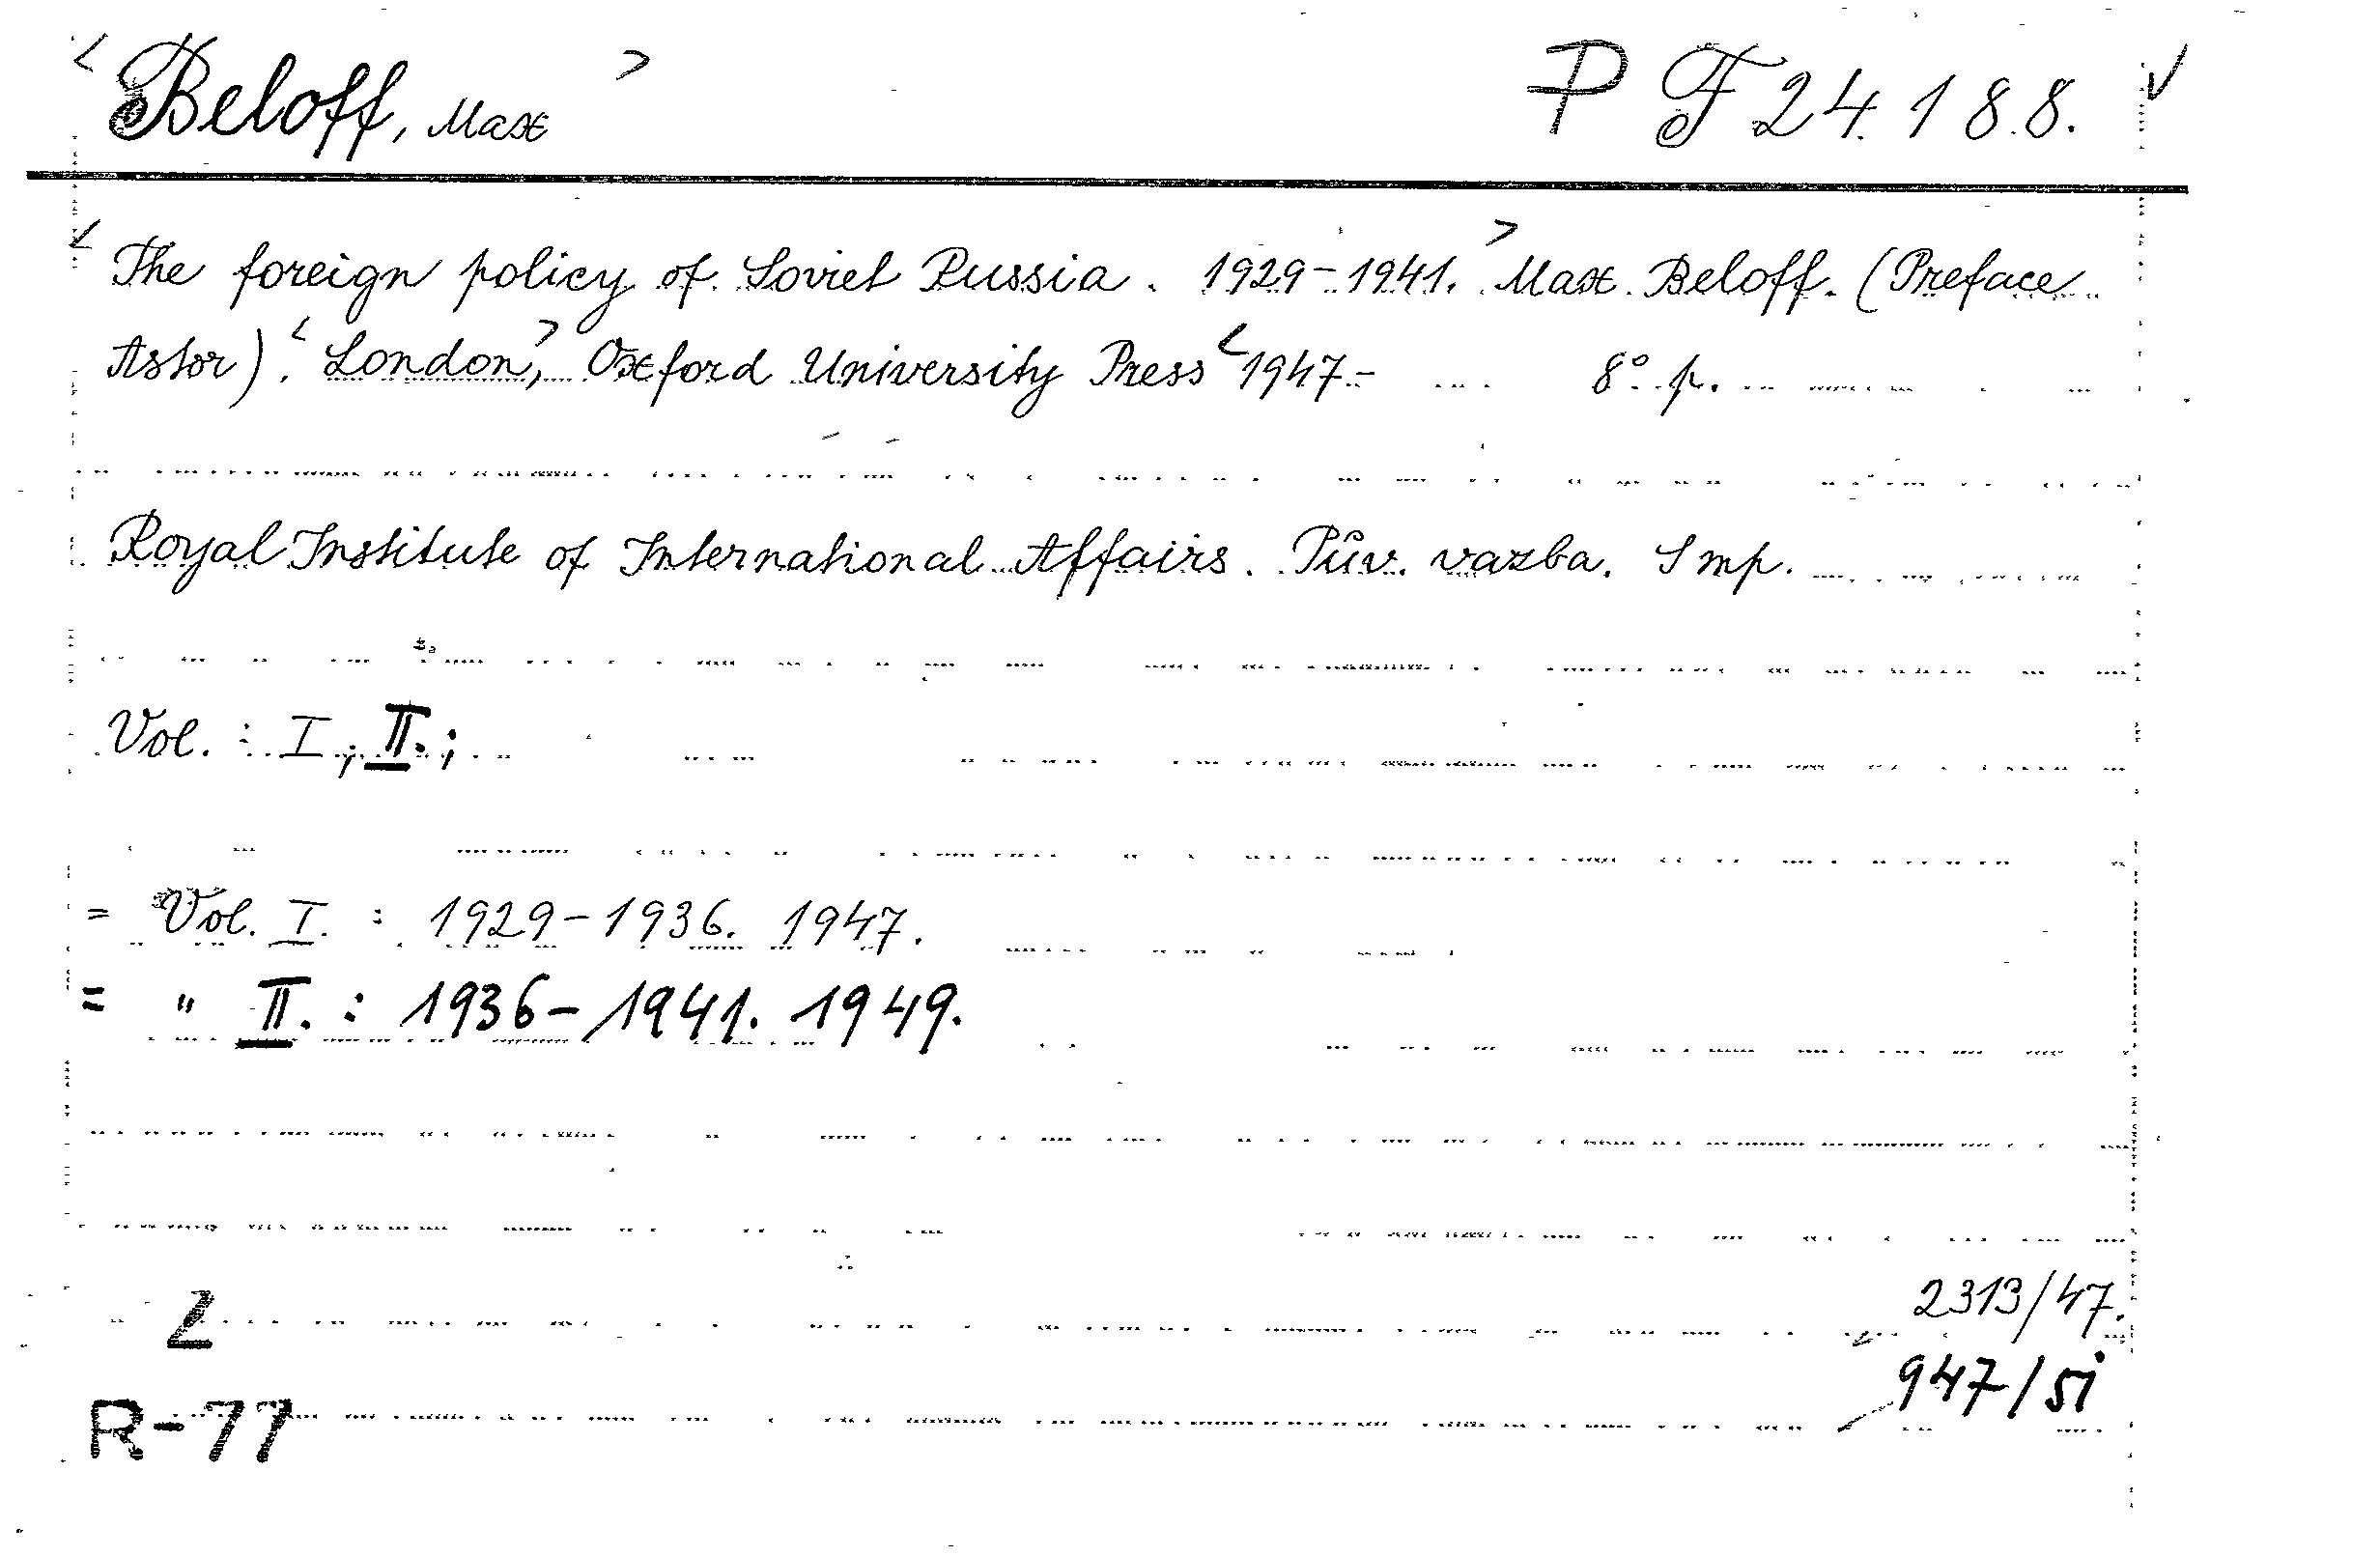 < Beloff, Max > P F 24.188.
The foreign policy of Soviet Russia. 1929-1941. > Max Beloff. (Preface
Astor). < London, > Oxford University Press < 1947- 8° p.
Royal Institute of International Affairs. Pův. vazba. Imp.
Vol. : I.; II.;
= Vol. I. : 1929-1936. 1947.
= " II. : 1936-1941. 1949.
2313/47.
Z
947/51
R-77